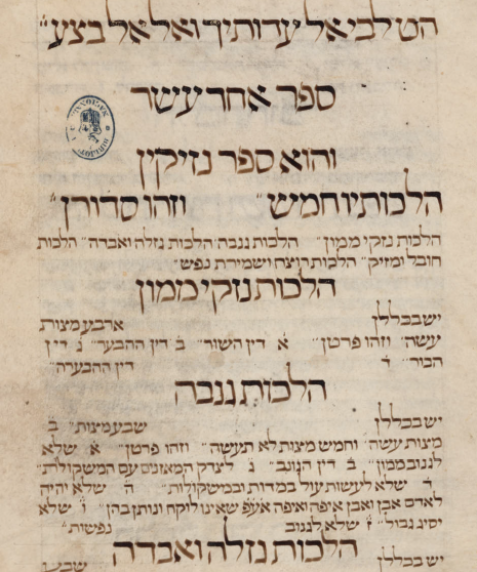 הט לבי אל עדותיך ואל אל בצע
ספר אחד עשר
והוא ספר נזיקין
הלכותיו חמש וזהו סדורן
הלכות נזקי ממון הלכות גנבה הלכות גזלה ואבדה הלכות
חובל ומזיק הלכות רוצח ושמירת נפש
הלכות נזקי ממון
יש בכללן ארבע מצות
עשה וזהו פרטן א דין השור ב דין ההבער ג דין
הבור ד דין ההבערה
הלכות גנבה
יש בכללן שבע מצות ב
מצות עשה וחמש מצות לא תעשה וזהו פרטן א שלא
לגנוב ממון ב דין הגנב ג לצדק המאזנים עם המשקולות
ד שלא לעשות עול במדות ובמשקולות ה שלא יהיה
לאדם אבן ואבן איפה ואיפה אעפ שאינו לוקח ונותן בהן ו שלא
יסיג גבול ז שלא לגנוב נפשות
הלכות גזלה ואבדה
יש בכללן שבע